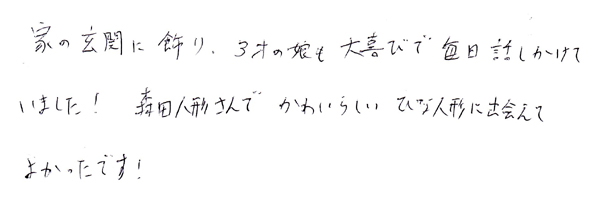 家の玄関に飾り、3才の娘も大喜びで毎日話しかけて
いました! 森田人形さんでかわいらしいひな人形に出会えて
よかったです!